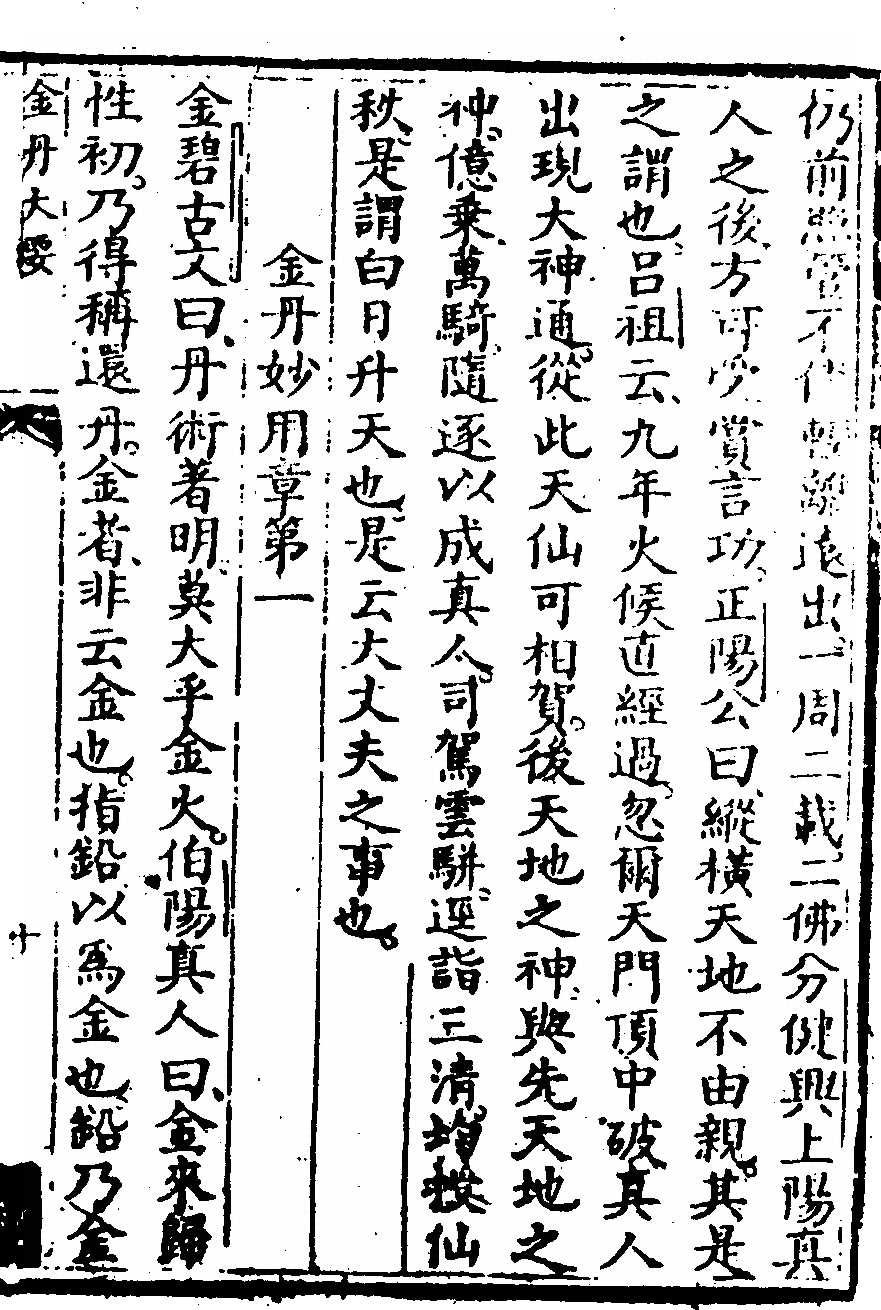 仍前照管不使暫離遠出一周二載二佛分健與上陽真
人之後方可受賞言功正陽公曰縱橫天地不由親其是
之謂也呂祖云九年火候直經過忽爾天門頂中破真人
出現大神通從此天仙可相賀後天地之神與先天地之
神億乗萬騎隨逐以成真人司駕雲駢逕詣三清增授仙
秩是謂白日升天也是云大丈夫之事也
金丹妙用章第一
金碧古文曰丹術著明莫大乎金火伯陽真人曰金來歸
性初乃得稱還丹金者非云金也指鉛以爲金也鉛乃金
金丹大
十